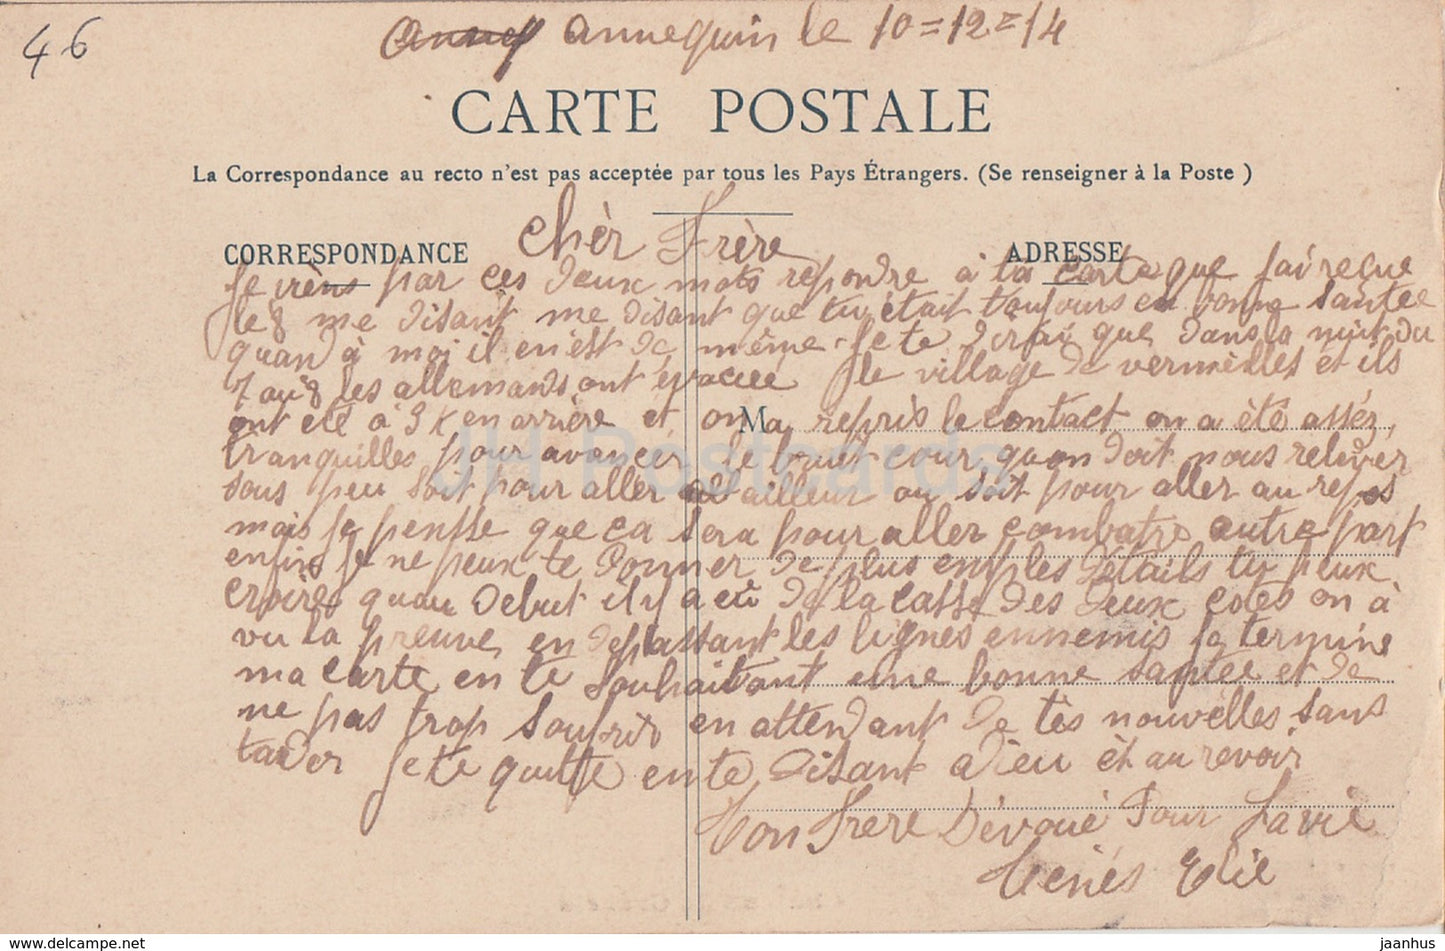 46
annequin le 10=12=14
CARTE POSTALE
La Correspondance au recto n'est pas acceptée par tous les Pays Étrangers. (Se renseigner à la Poste )
CORRESPONDANCE
ADRESSE
Chèr Frère
Je vièns par ces deux mots repondre à la carte que jai reçue
le 8 me disant me disant que tu était toujours en bonne santee
quand à moi il en est de même. Je te dirai que dans la nuit du
7 au 8 les allemands ont evacuee le village de vermèlles et ils
ont été à 3 K en arrière et on Ma repris le contact on a été assez
tranquilles pour avancer le bruit cour quon doit nous relever
sous peu soit pour aller ailleur ou soit pour aller au repos
mais je pensse que ca sera pour aller combatre autre part
enfin je ne peux te donner de plus emples détails tu peux
croire quau debut il y a eu de la casse des deux cotes on à
vu la preuve en depassant les lignes ennemis je termine
ma carte en te souhaitant une bonne santee et de
ne pas trop soufrir en attendant de tès nouvèlles sans
tarder je te quitte en te disant adieu èt au revoir
Ton Frere Dévoué Pour La vie
Elie
JH Postcards
www.delcampe.net
jaanhus